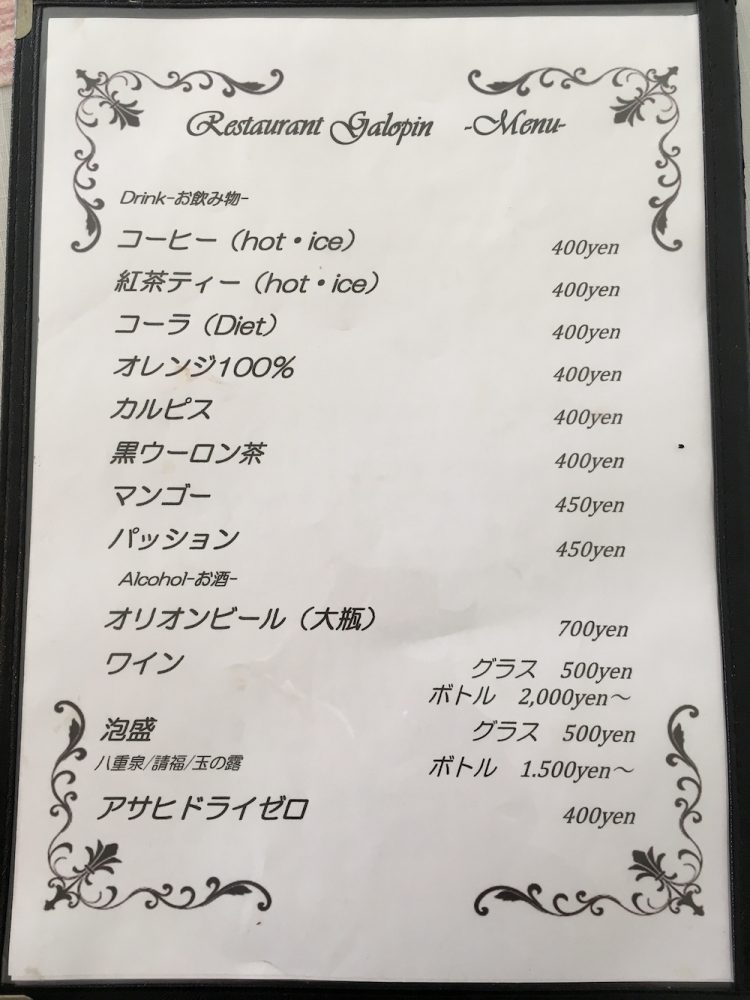 Restaurant Galopin -Menu-
Drink-お飲み物-
コーヒー（hot・ice） 400yen
紅茶ティー（hot・ice） 400yen
コーラ（Diet） 400yen
オレンジ100% 400yen
カルピス 400yen
黒ウーロン茶 400yen
マンゴー 450yen
パッション 450yen
Alcohol-お酒-
オリオンビール（大瓶） 700yen
ワイン グラス 500yen
ボトル 2,000yen～
泡盛 グラス 500yen
八重泉/請福/玉の露 ボトル 1.500yen～
アサヒドライゼロ 400yen